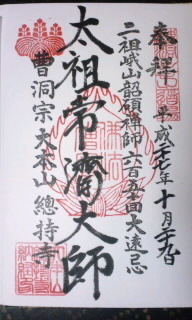 奉拝 平成二十七年十月二十九日
二祖峨山韶碩禅師六百五十回大遠忌
太祖常済大師
曹洞宗大本山總持寺